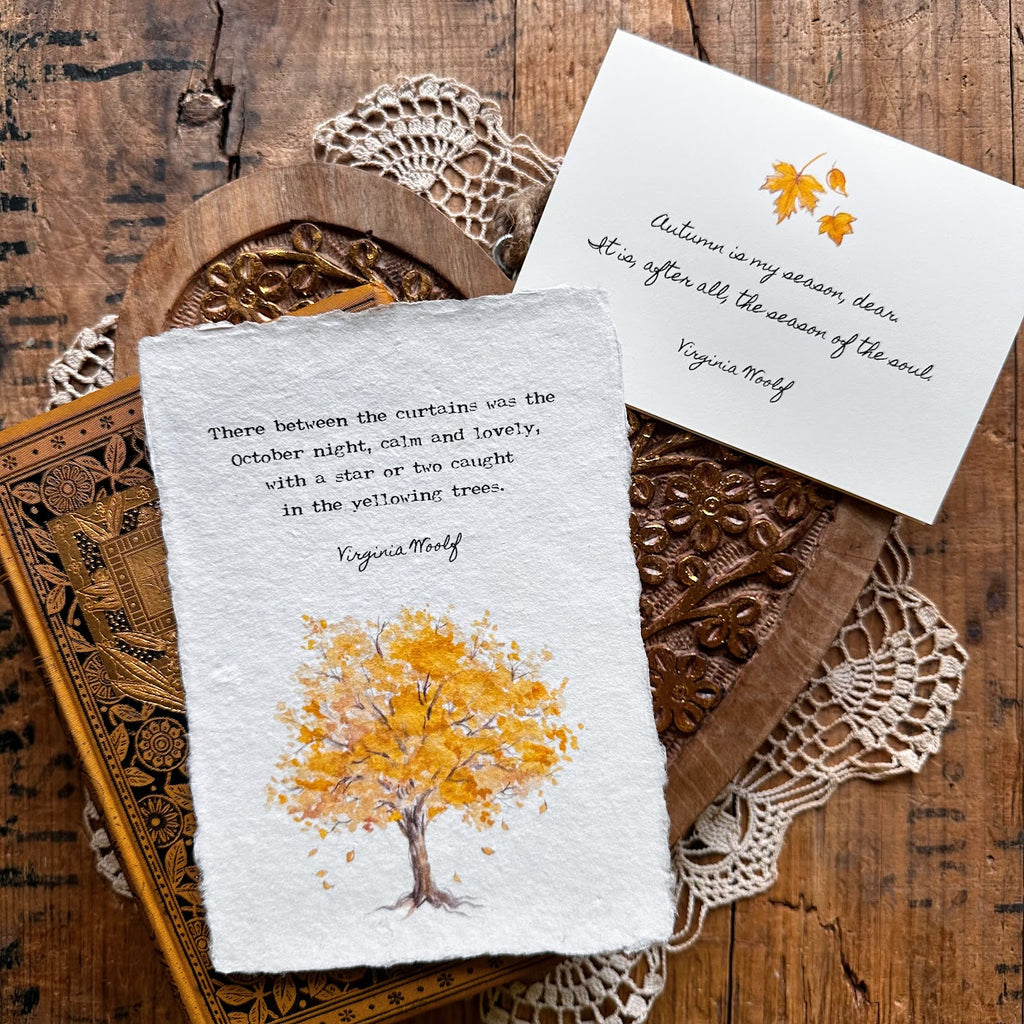 There between the curtains was the
October night, calm and lovely,
with a star or two caught
in the yellowing trees.
Virginia Woolf
Autumn is my season, dear.
It is, after all, the season of the soul.
Virginia Woolf